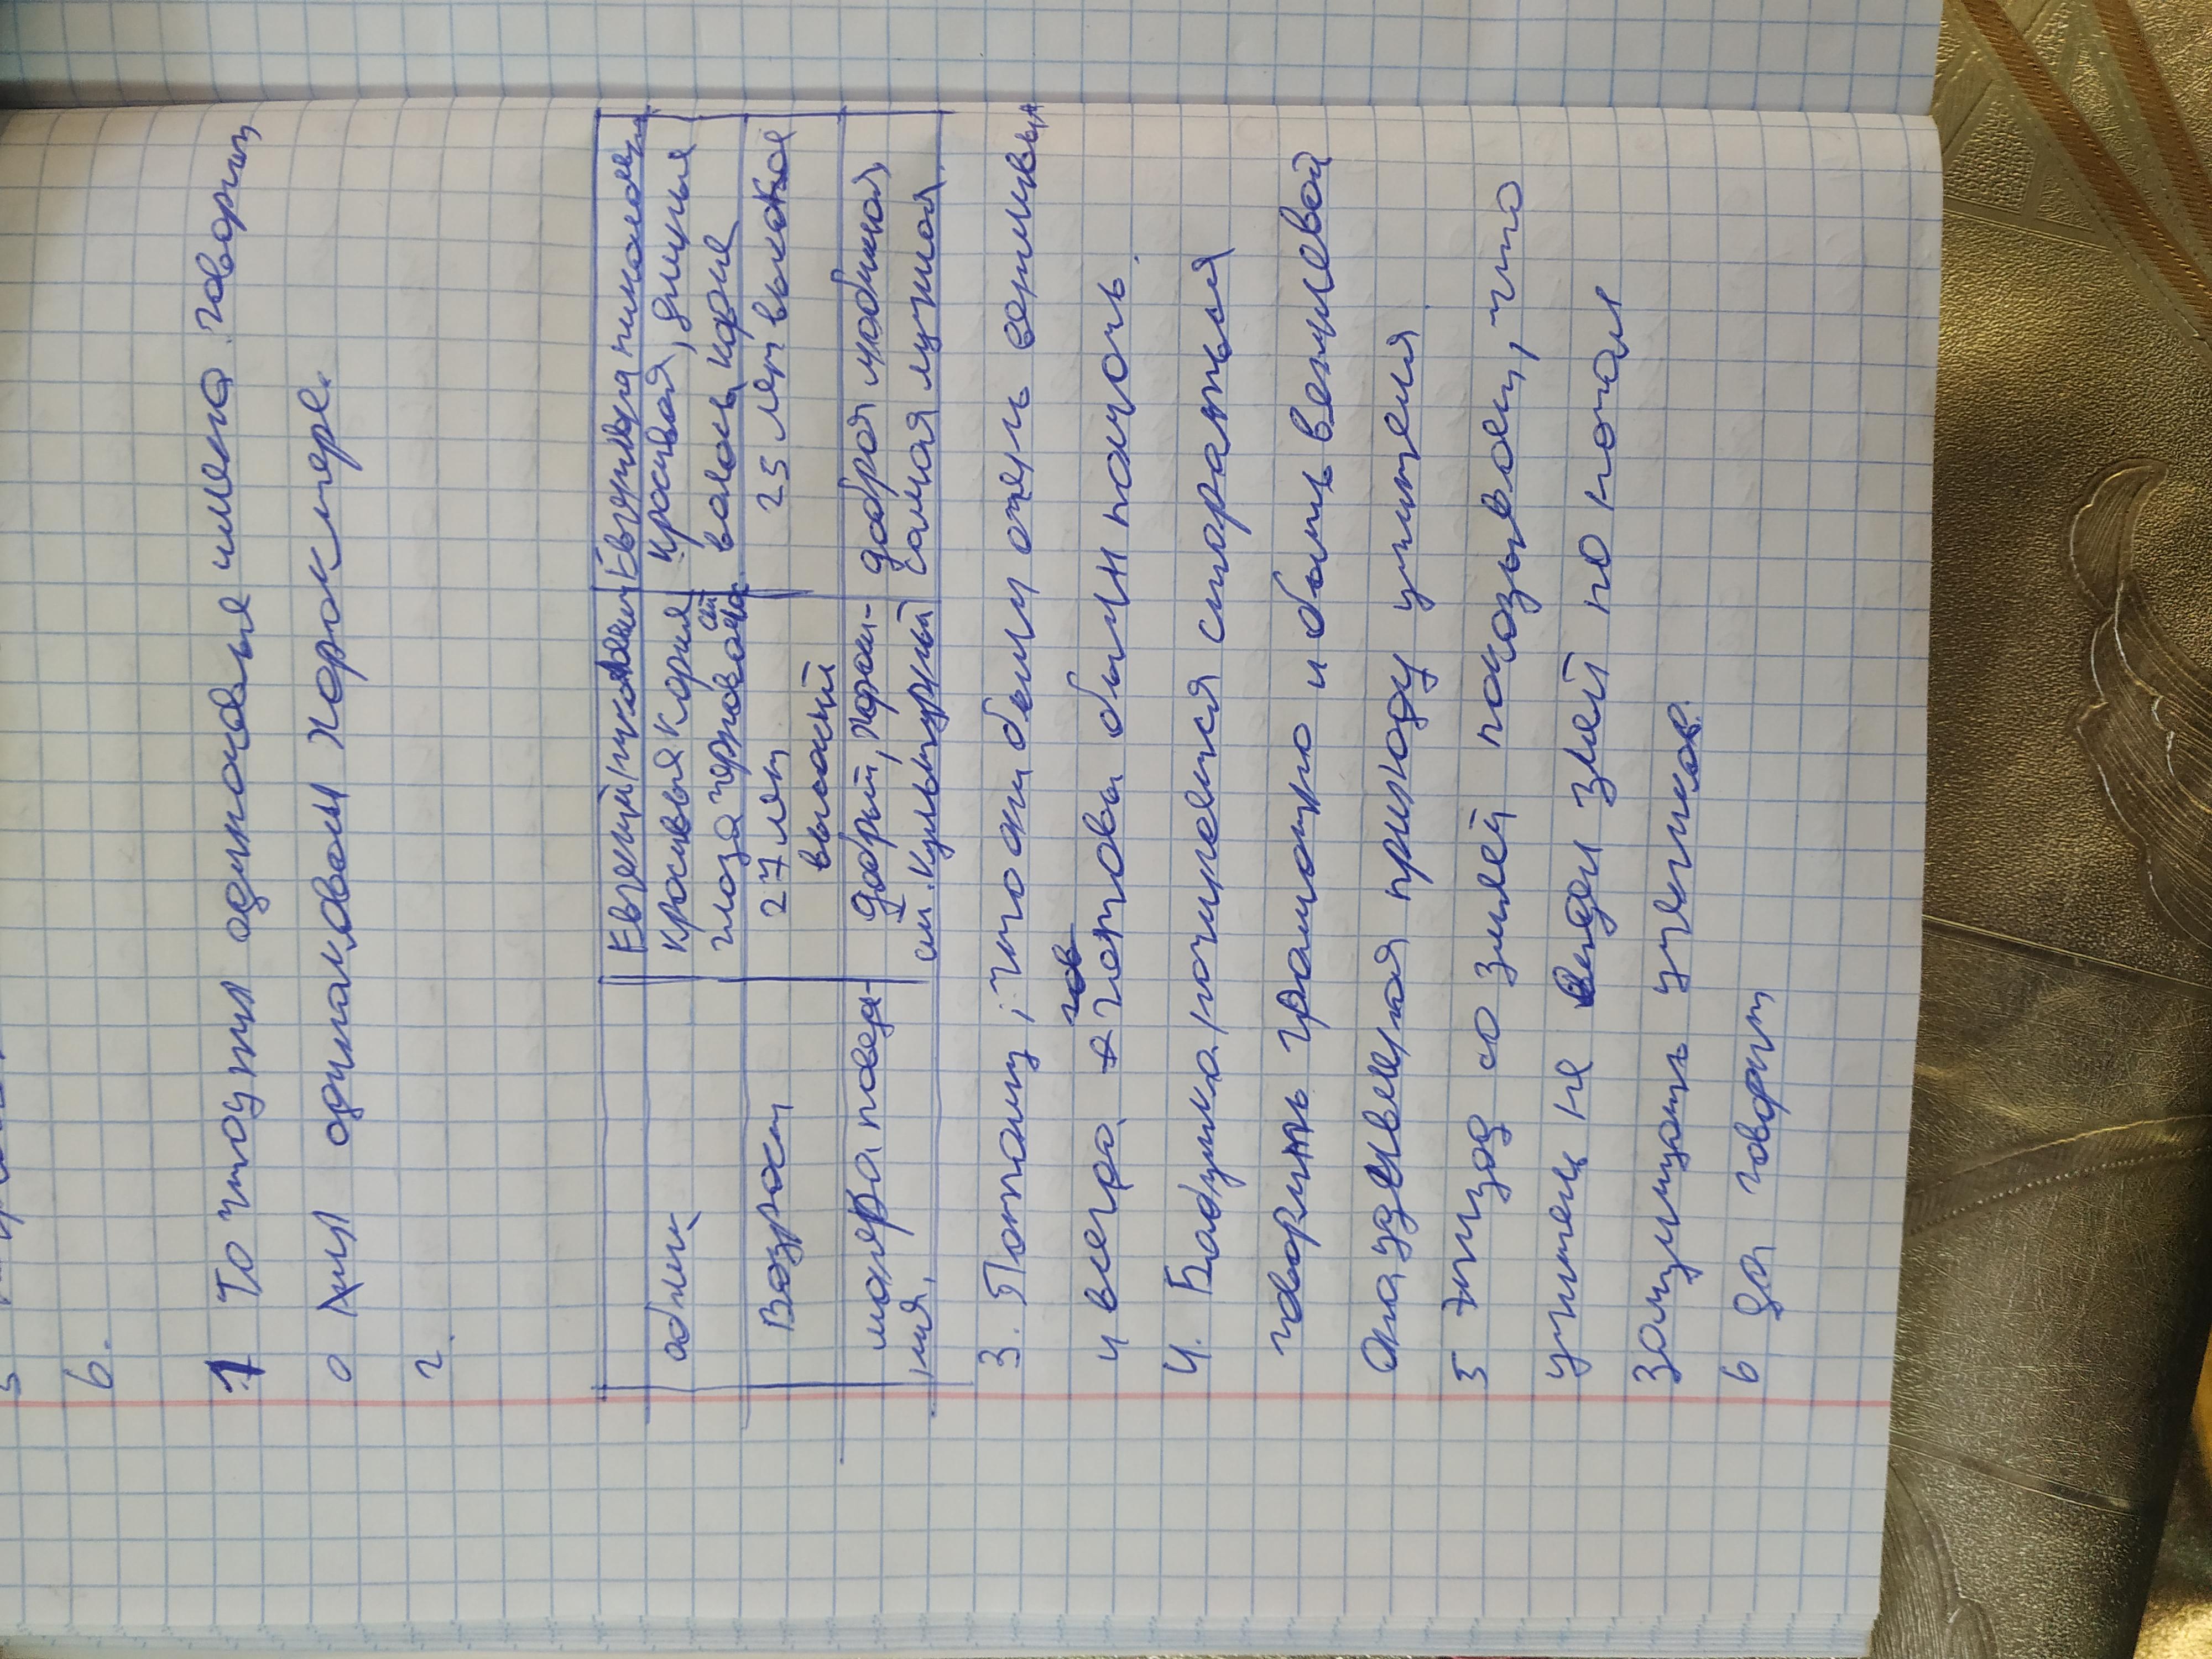 6.
1 То что у них одинаковые имена говорит
о них одинаковом характере.
2.
Евгений николаевич Евгения николаевна
облик красивыя кария глаза черноволосый красивая, длиныя волосы, карие
Возраст 27 лет высокий 25 лет высокая
манера поведения. добрый, хороший. Культурный добрая любимая, самая лучшая.
3. Потому, что они были очень вежливыя
и всегда готовы были помочь.
4. Бабушка, начинается старатья
говорить грамотно и быть вежлевой
она уз приходу учителя.
5 эпизод со змеей показывает, что
учитель не видел змей но начал
защищать учеников.
6 да говорит